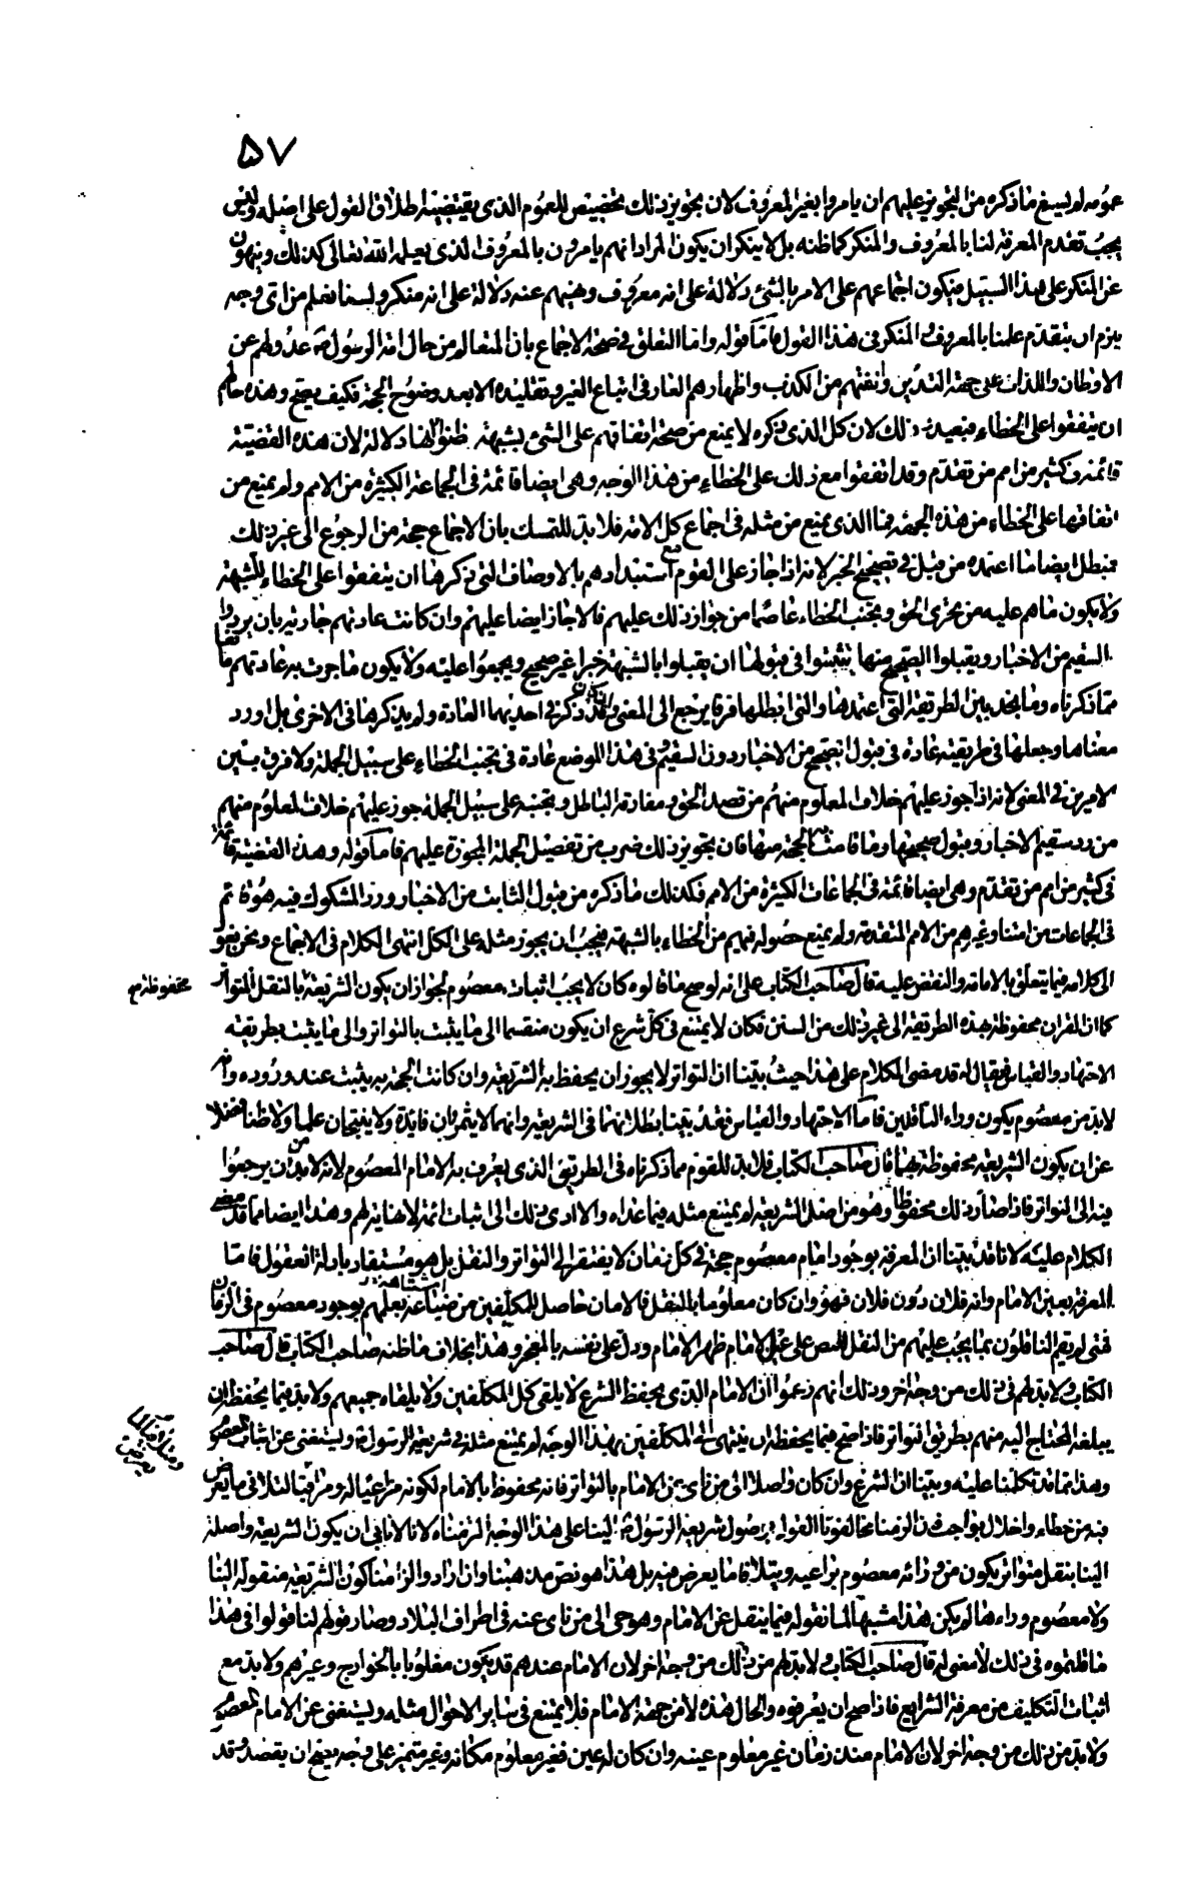 ٥٧
عمومه لم يسغ ما ذكره من التجويز عليهم ان يامروا بغير المعروف لان تجويز ذلك تخصيص للعموم الذى يقتضيه اطلاق القول على اصله وليس
يجب تقدم المعرفة لنا بالمعروف والمنكر كما ظنه بل لا ينكر ان يكون المراد انهم يامرون بالمعروف الذى يعلمه الله تعالى كذلك وينهون
عن المنكر على هذا السبيل فيكون اجماعهم على الامر بالشئ دلالة على انه معروف ونهيهم عنه دلالة على انه منكر ولسنا نعلم من اى وجه
يلزم ان يتقدم علمنا بالمعروف والمنكر فى هذا القول فاما قوله واما التعلق فى صحة الاجماع بان المتعالم من حال امة الرسول ص عدولهم عن
الاوطان واللذات على جهة التدين وانفتهم من الكذب واظهارهم العار فى اتباع الغير وتقليده الا بعد وضوح الحجة فكيف يصح وهذه حالهم
ان يتفقوا على الخطاء فبعيد وذلك لان كل الذى ذكره لا يمنع من صحة اتفاقهم على الشئ بشبهة ظنوا انها دلالة لان هذه القضية
قائمة فى كثير من امم من تقدم وقد اتفقوا مع ذلك على الخطاء من هذا الوجه وهى ايضا قائمة فى الجماعة الكثيرة من الامم ولم يمنع من
اتفاقها على الخطاء من هذه الجهة فما الذى يمنع من مثله فى اجماع كل الامة فلا بد للتمسك بان الاجماع حجة من الرجوع الى غير ذلك
فبطل ايضا ما اعتمده من قبل فى تصحيح الخبر لانه اذا جاز على القوم مع استبدادهم بالاوصاف التى ذكرها ان يتفقوا على الخطاء للشبهة
ولا يكون ما هم عليه من تحرى الحق وتجنب الخطاء عاصما من جواز ذلك عليهم فالا جاز ايضا عليهم وان كانت عادتهم جارية بان يردوا
السقيم من الاخبار ويقبلوا الصحيح منها يتثبتوا فى قبولها ان يقبلوا بالشبهة خبرا غير صحيح ويجمعوا عليه ولا يكون ما جرت به عادتهم مانعا
مما ذكرناه وما نجد بين الطريقة التى اعتمدها والتى ابطلها فرقا يرجع الى المعنى وانكان قد ذكر فى احديهما العادة ولم يذكرها فى الاخرى بل اورد
معناها وجعلها فى طريقته عادة فى قبول الصحيح من الاخبار دون السقيم وفى هذا الموضع عادة فى تجنب الخطاء على سبيل الجملة ولا فرق بين
الامرين فى المعنى لانه اذا جوز عليهم خلاف المعلوم منهم من قصد الحق ومفارقة الباطل وتجنبه على سبيل الجملة جوز عليهم خلاف المعلوم منهم
من رد سقيم الاخبار وقبول صحيحها وما قامت الحجة منها فان تجويز ذلك ضرب من تفصيل الجملة المجوزة عليهم فاما قوله وهذه القضية قائمة
فى كثير من امم من تقدم وهى ايضا قائمة فى الجماعات الكثيرة من الامم فكذلك ما ذكره من قبول الثابت من الاخبار ورد المشكوك فيه هو قائم
فى الجماعات من امتنا وغيرهم من الامم المتقدمة ولم يمنع حصوله فيهم من الخطاء بالشبهة فيجب ان يجوز مثله على الكل انتهى الكلام فى الاجماع ونحن نعود
الى كلامه فيما يتعلق بالامامة والنقض عليه قال صاحب الكتاب على انه لو صح ما قالوه كان لا يجب اثبات معصوم لجواز ان يكون الشريعة بالنقل المتواتر
محفوظة م
كما ان القران محفوظ بهذه الطريقة الى غير ذلك من السنن فكان لا يمتنع فى كل شرع ان يكون منقسما الى ما يثبت بالتواتر والى ما يثبت بطريقة
الاجتهاد والقياس فيقال له قد مضى الكلام على هذا حيث بينا ان التواتر لا يجوز ان يحفظ به الشريعة وان كانت الحجة به يثبت عند وروده وانه
لابد من معصوم يكون وراء الناقلين فاما الاجتهاد والقياس فقد بينا بطلانهما فى الشريعة وانهما لا يثمران فايدة ولا ينتجان علما ولا ظنا فضلا
عن ان يكون الشريعة محفوظة بهما قال صاحب الكتاب فلابد للقوم مما ذكرناه فى الطريق الذى يعرف به الامام المعصوم لانه لابد من ان يرجعوا
فيه الى التواتر فاذا صار ذلك محفوظا وهو من اصل الشريعة لم يمتنع مثله فيما عداه والا ادى ذلك الى اثبات ائمة لا نهاية لهم وهذا ايضا مما قد مضى
الكلام عليه لانا قد بينا ان المعرفة بوجود امام معصوم حجة فى كل زمان لا يفتقر الى التواتر والنقل بل هو مستفاد بادلة العقول فاما
المعرفة بعين الامام وانه فلان دون فلان فهو وان كان معلوما بالنقل فالامان حاصل للمكلفين من ضياعه بعلمهم بوجود معصوم فى الزمان
فمتى لم يقم الناقلون بما يجب عليهم من النقل للنص على عين الامام ظهر الامام ودل على نفسه بالمعجز وهذا بخلاف ما ظنه صاحب الكتاب قال صاحب
الكتاب ولابد لهم فى ذلك من وجه اخر وذلك انهم زعموا ان الامام الذى يحفظ الشرع لا يلقى كل المكلفين ولا يلقاه جميعهم ولابد فيما يحفظه ان
يبلغه المحتاج اليه منهم بطريق التواتر فاذا صح فيما يحفظه ان ينتهى الى المكلفين بهذا الوجه لم يمتنع مثله فى شريعة الرسول ص ويستغنى عن اثبات المعصوم
وهذا مما قد تكلمنا عليه وبينا ان الشرع وان كان واصلا الى من نأى عن الامام بالتواتر فانه محفوظ بالامام لكونه مراعيا له ومراقبا لتلافى ما يعرض
فيه من خطاء واخلال بواجب الزمنا مخالفونا القول بوصول شريعة الرسول ص الينا على هذا الوجه التزمناه لانا لا نابى ان يكون الشريعة واصلة
الينا بنقل متواتر يكون من ورائه معصوم يراعيه ويتلافى ما يعرض فيه بل هذا هو نص مذهبنا وان ارادوا الزامنا كون الشريعة منقولة الينا
ولا معصوم وراءها لم يكن هذا مشبها لما نقوله فيما ينقل عن الامام وهو حى الى من نأى عنه فى اطراف البلاد وصار قولهم لنا قولوا فى هذا
ما قلتموه فى ذلك لا معنى له قال صاحب الكتاب ولابد لهم من ذلك من وجه اخر لان الامام عندهم قد يكون مغلوبا بالخوارج وغيرهم ولابد مع
اثبات التكليف من معرفة الشرايع فاذا صح ان يعرفوه والحال هذه لا من جهة الامام فلا يمتنع فى ساير الاحوال مثله ويستغنى عن الامام المعصوم
ولابد من ذلك من وجه اخر لان الامام منذ زمان غير معلوم عينه وان كان له عين فغير معلوم مكانه وغير متميز على وجه يصح ان يقصد وقد